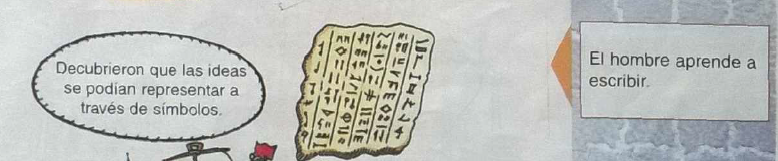 Decubrieron que las ideas
se podian representar a
través de símbolos.
El hombre aprende a
escribir.